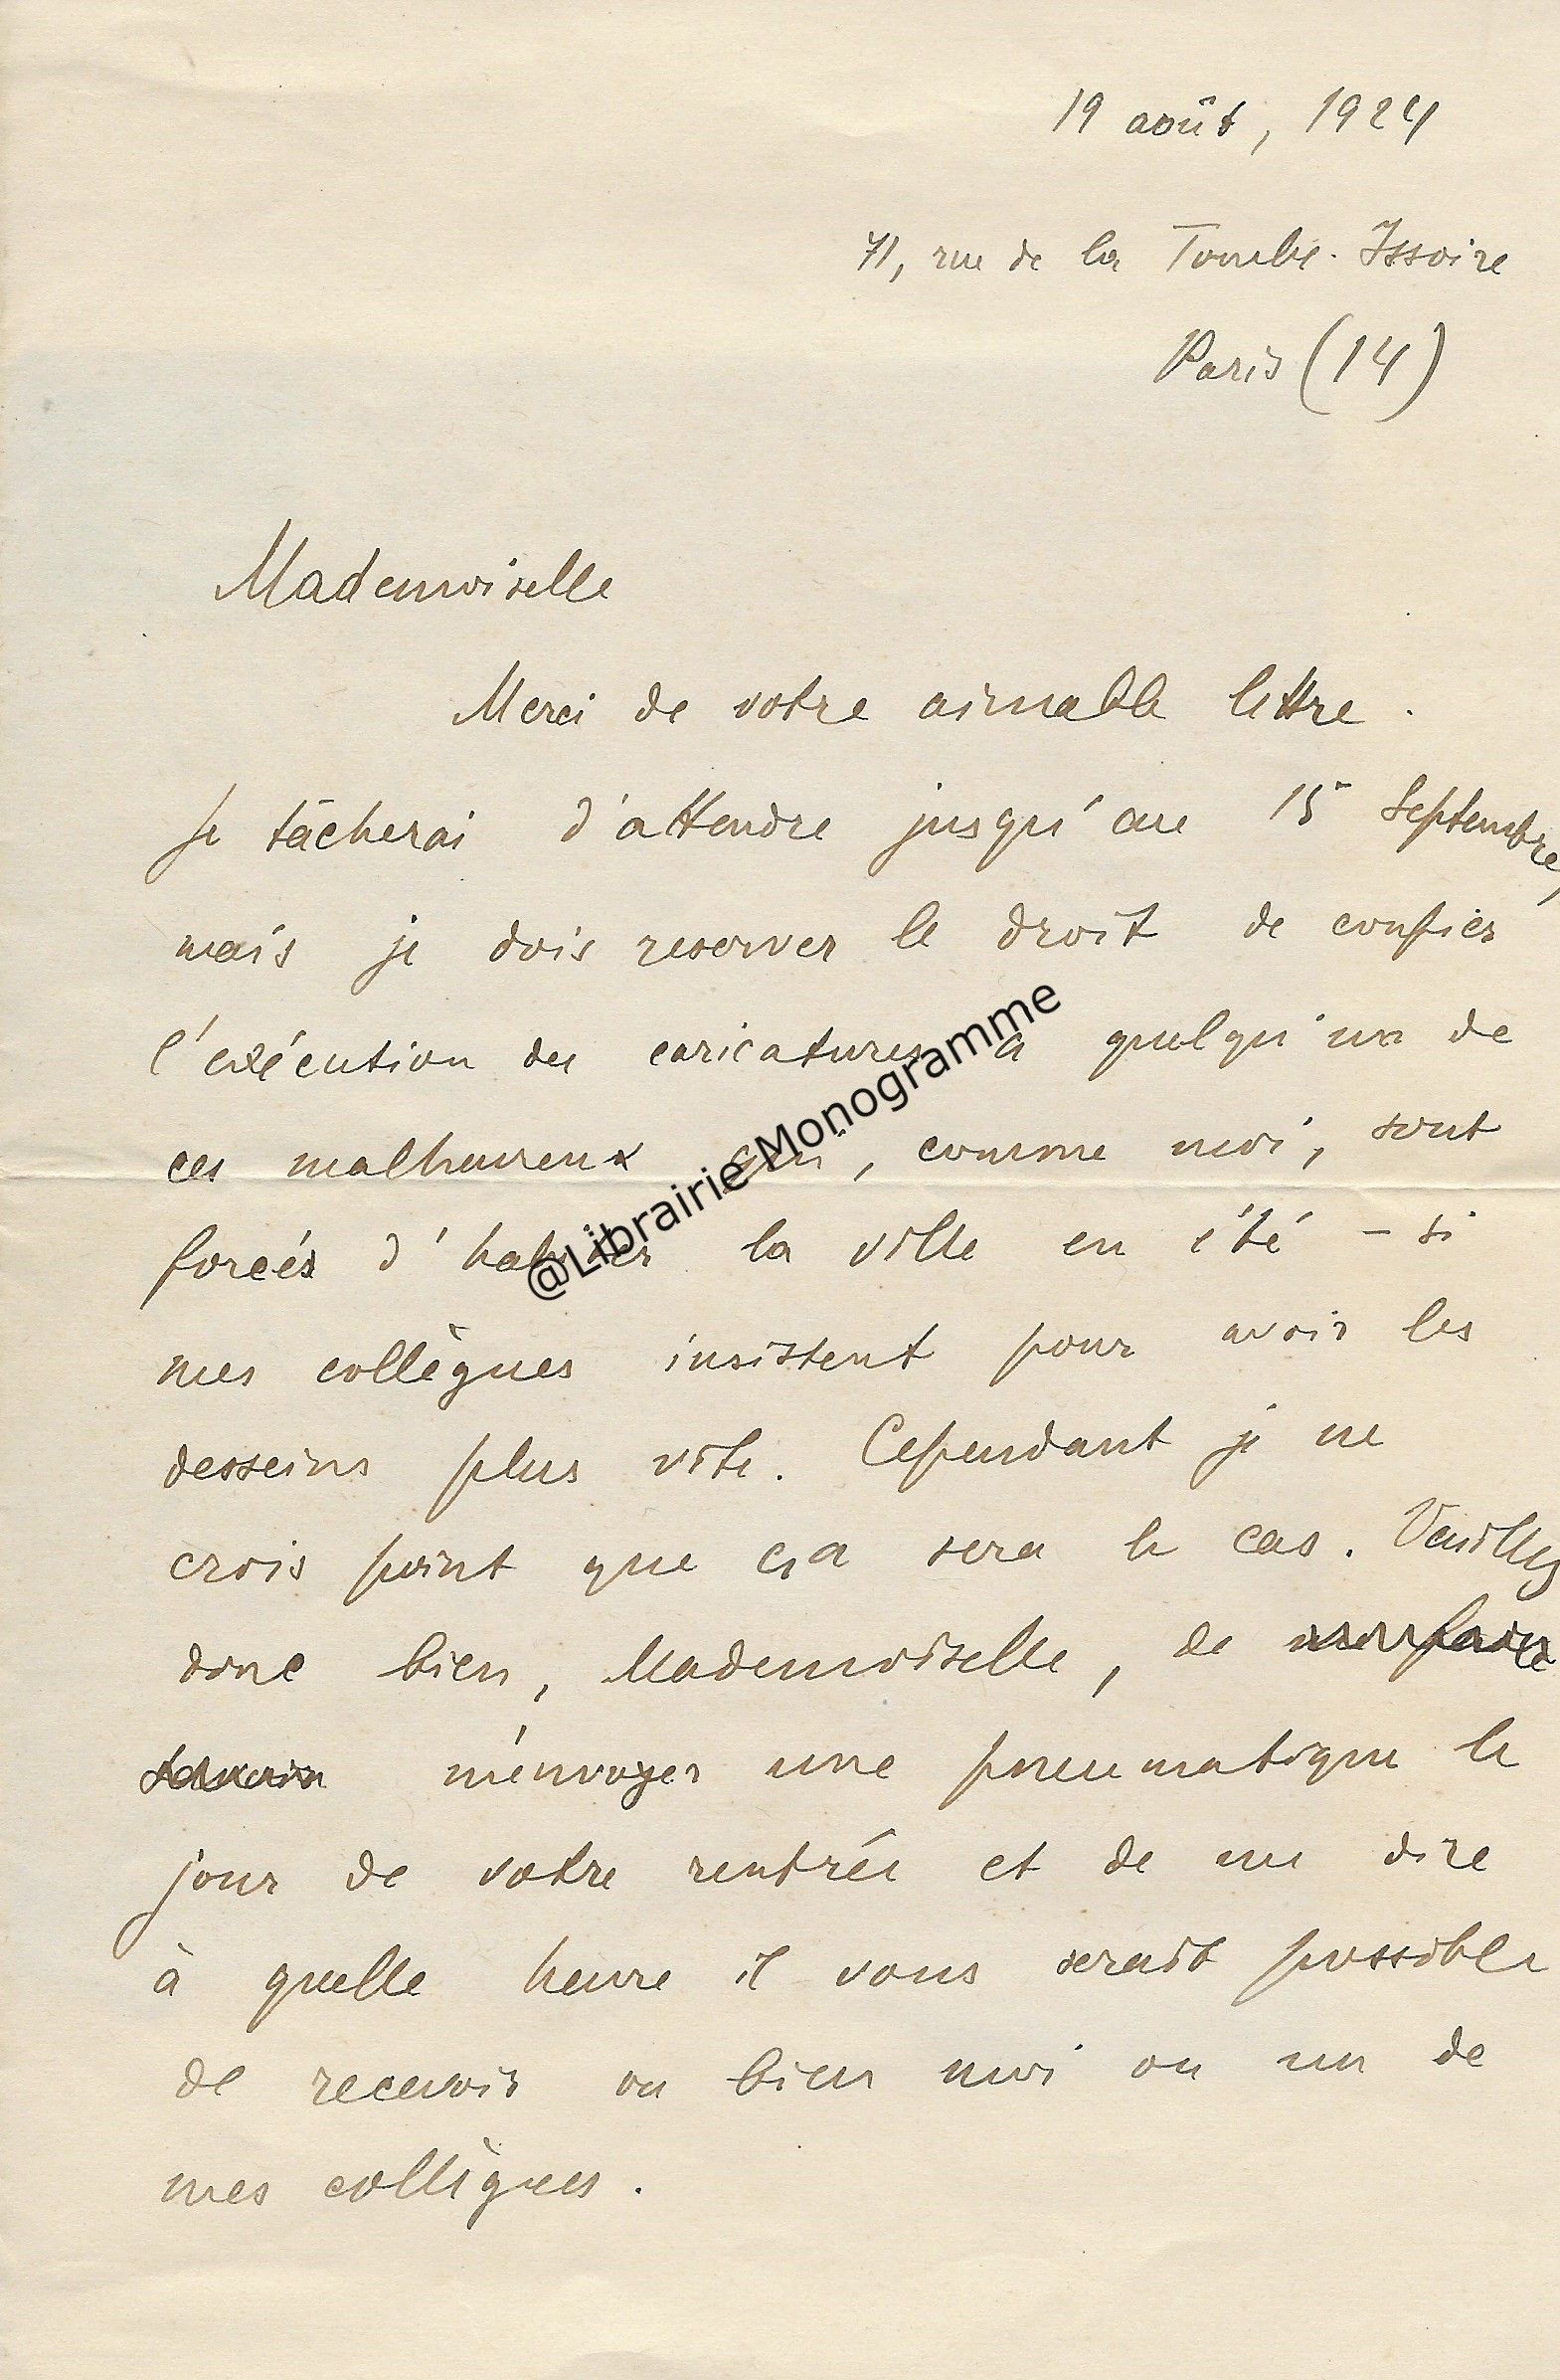 19 août, 1924
71, rue de la Tombe-Issoire
Paris (14)
Mademoiselle
Merci de votre aimable lettre.
Je tâcherai d'attendre jusqu'au 15 Septembre,
mais je dois reserver le droit de confier
l'exécution des caricatures à quelqu'un de
ces malheureux qui, comme moi, sont
forcés d'habiter la ville en été – si
mes collègues insistent pour avoir les
desseins plus vite. Cependant je ne
crois point que ça sera le cas. Veuillez
donc bien, Mademoiselle, de
m'envoyer une pneumatique le
jour de votre rentrée et de me dire
à quelle heure il vous serait possible
de recevoir ou bien moi ou un de
mes collègues.
@Librairie Monogramme